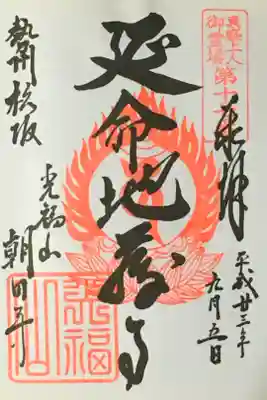 御霊場第十
奉拝
平成廿三年
九月五日
延命地蔵尊
勢州松阪
光福山
朝田寺